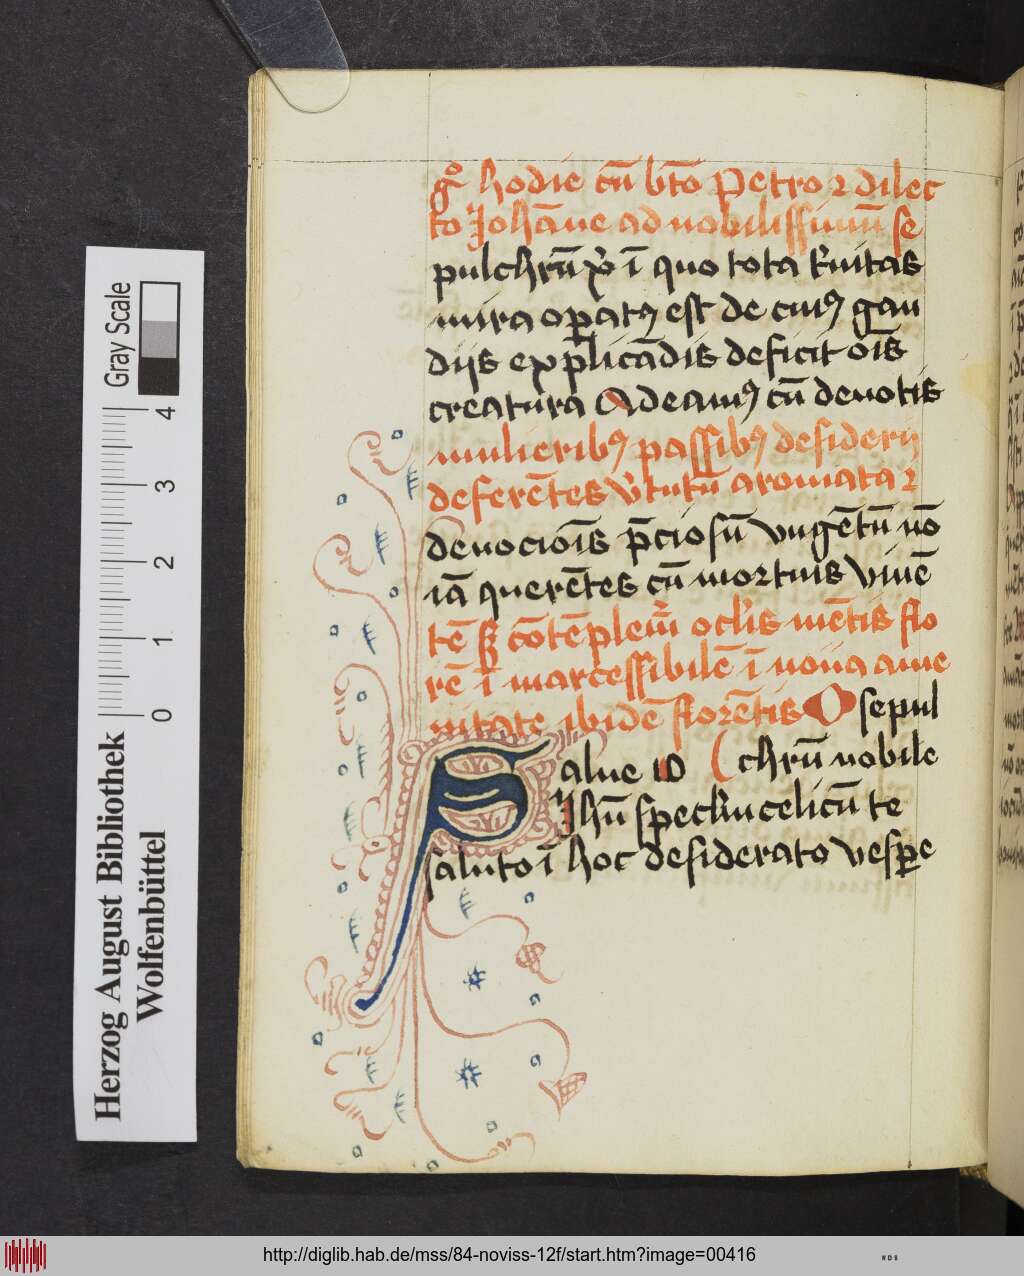 gͦ hodie cū bt̄o Petro ⁊ dilec
to Johāne ad nobilissimū se
pulchrū xp̄i ī quo tota t̓nitas
mira oꝑatꝰ est de cuiꝰ gau
dijs explicādis deficit oīs
creatura Adeamꝰ cū deuotis
mulieribꝰ passibꝰ desiderij
deferētes v̓tutū aromata ⁊
deuocioīs p̄ciosū vngētū nō
iā querētes cū mortuis viuē
tē sꝫ cōtēplem̄ oclīs mētis flo
rē īmarcessibilē ī noua ame
nitate ibidē florētis O sepul
Salue io chrū nobile
Jhū speclm celicū te
saluto ī hoc desiderato vesꝑe
Gray Scale
4
3
2
1
0
Herzog August Bibliothek
Wolfenbüttel
http://diglib.hab.de/mss/84-noviss-12f/start.htm?image=00416